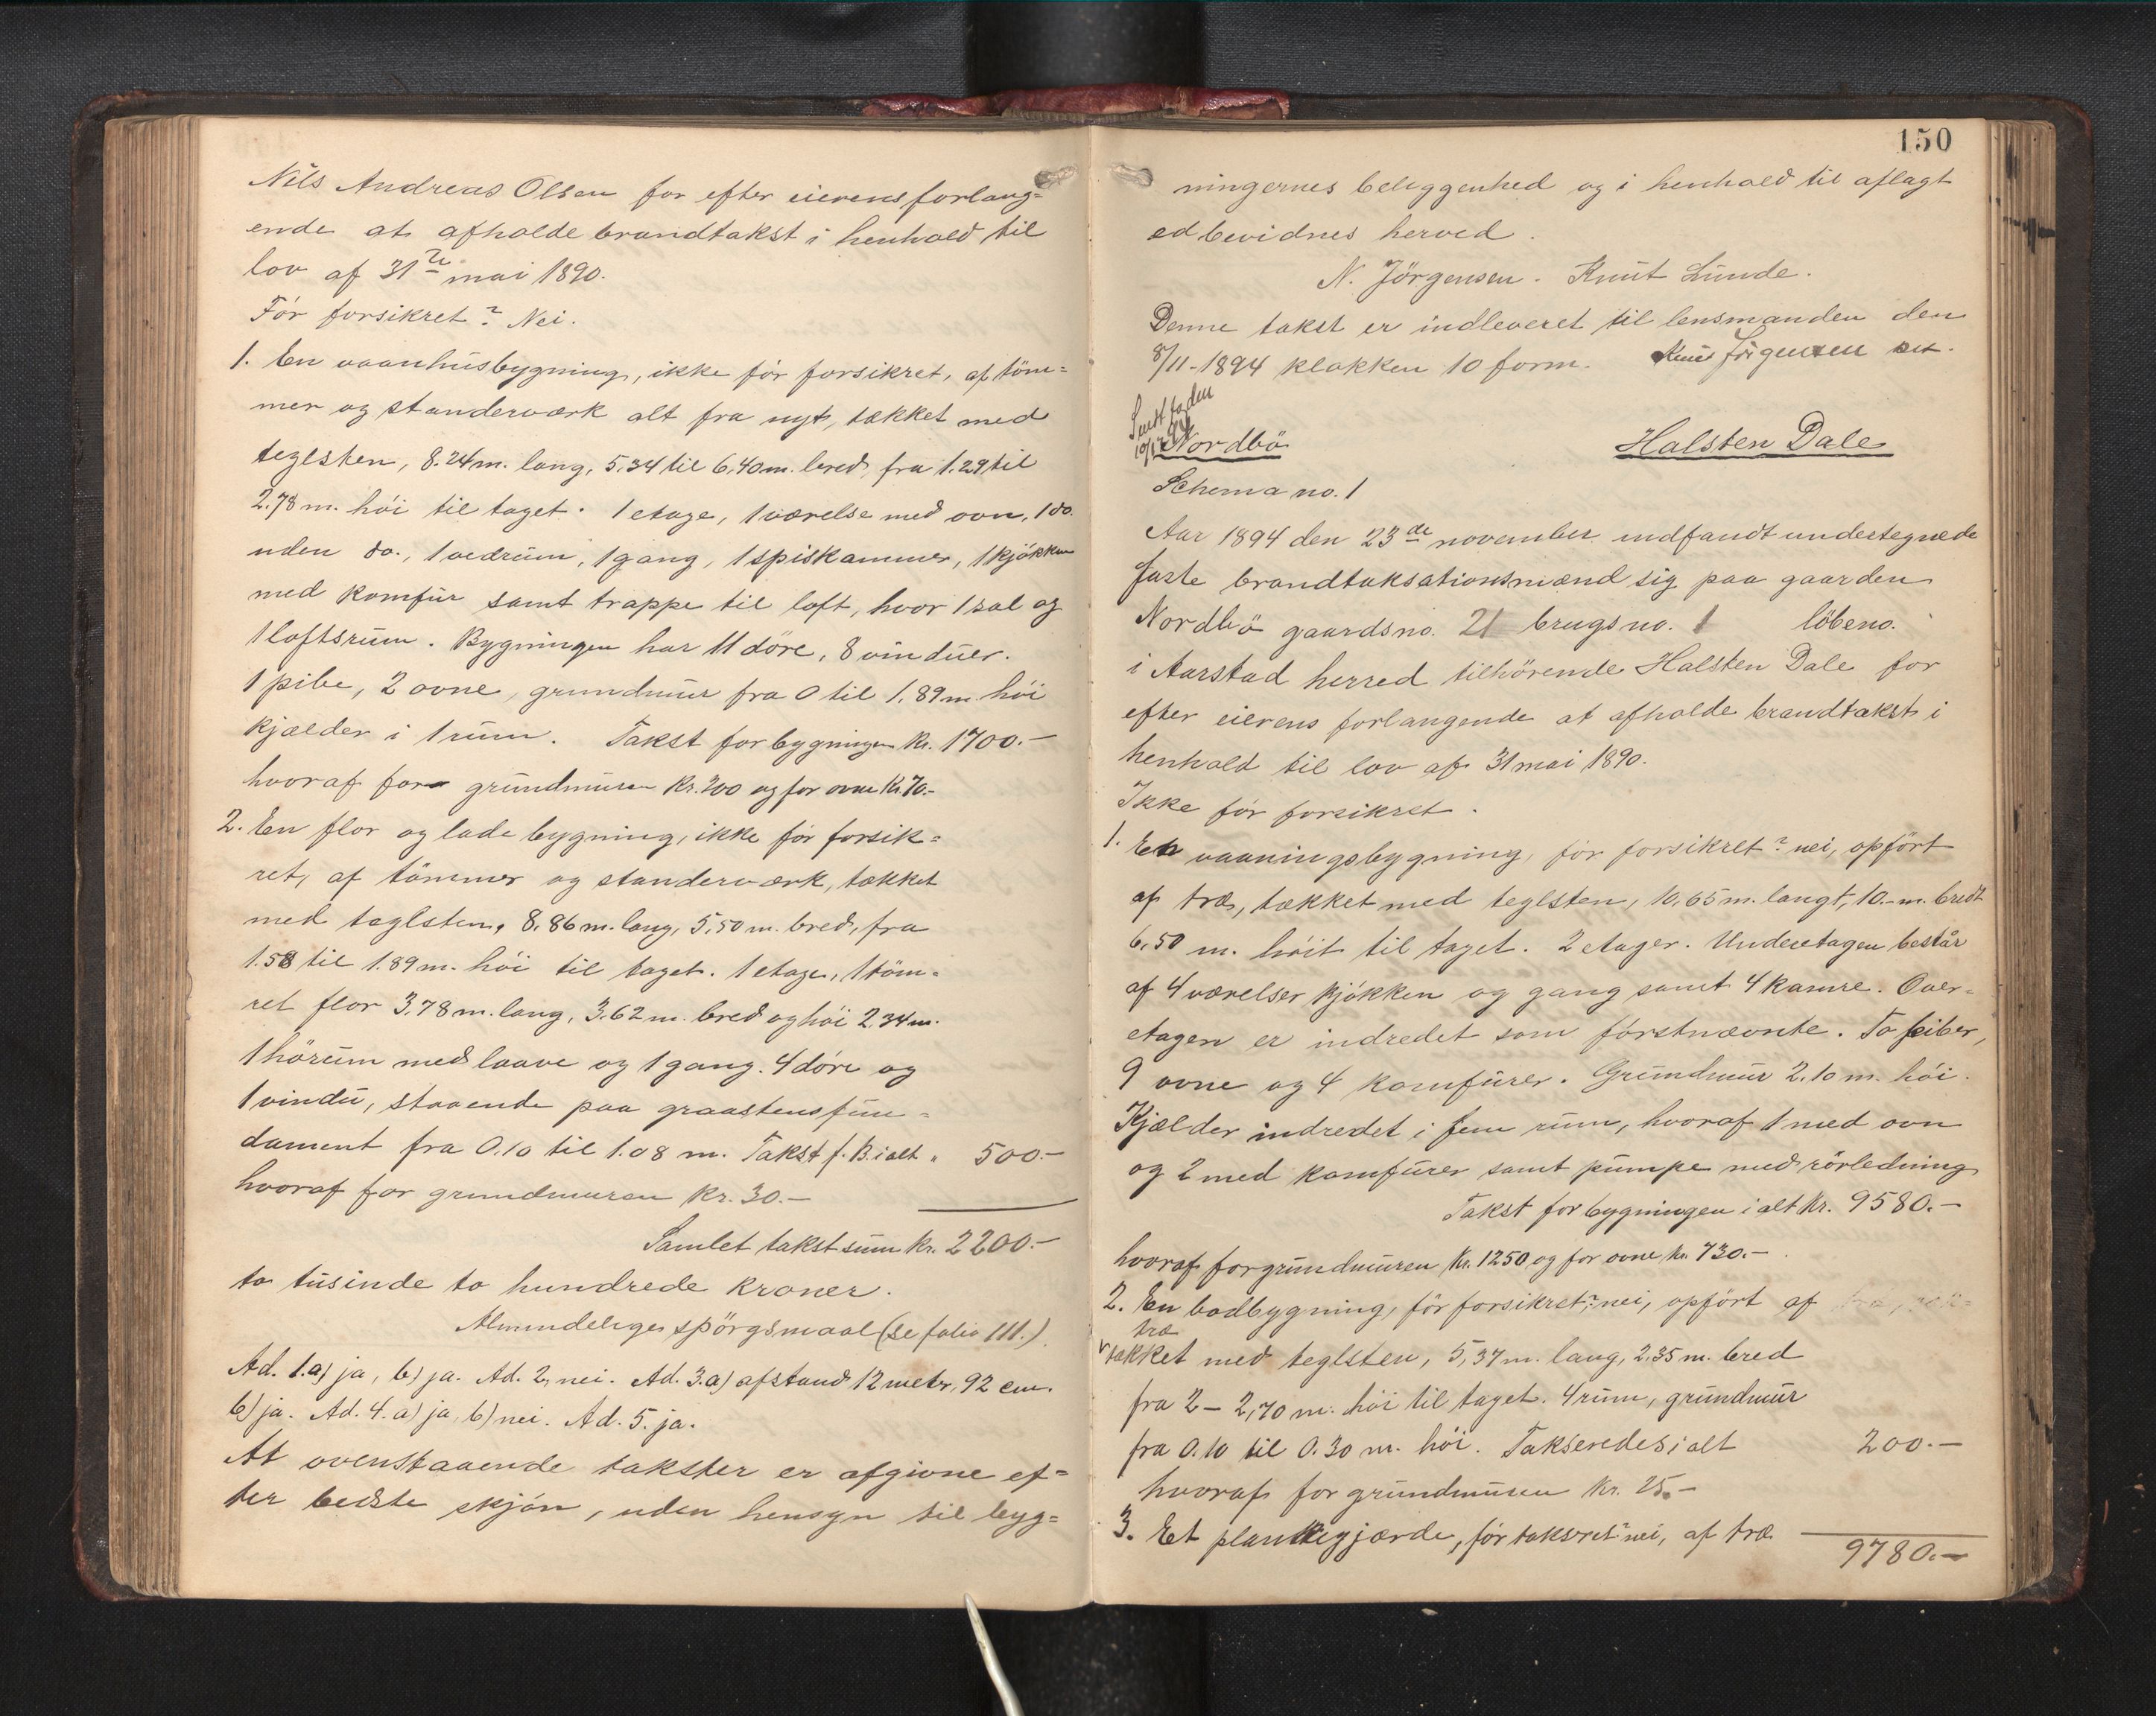 Nils Andreas Olsen for efter eierens forlang=
ende at afholde brandtakst i henhold til
lov af 31te mai 1890.
Før forsikret? Nei.
1. En vaanhusbygning, ikke før forsikret, af töm=
mer og standerværk alt fra nyt, tækket med
teglsten, 8.24 m. lang, 5,34 til 6,40 m. bred, fra 1.29 til
2.78 m. höi til taget. 1 etage, 1 værelse med ovn, 1 do.
uden do., 1 vedrum, 1 gang, 1 spiskammer, 1 kjökken
med komfur samt trappe til loft, hvor 1 sal og
1 loftsrum. Bygningen har 11 döre, 8 vinduer.
1 pibe, 2 ovne, grundmur fra 0 til 1,89 m. höi
kjælder i 1 rum. Takst for bygningen Kr. 1700.-
hvoraf for grundmuren Kr. 200 og for ovne Kr. 70.-
2. En flor og lade bygning, ikke för forsik=
ret, af tömmer og standerværk, tækket
med teglsten, 8,86 m. lang, 5,50 m. bred, fra
1.58 til 1.89 m. höi til taget. 1 etage, 1 töm=
ret flor 3,78 m. lang, 3,62 m. bred og höi 2,34 m.
1 hörum med laave og 1 gang. 4 döre og
1 vindu, staaende paa graastensfun=
dament fra 0.10 til 1.08 m. Takst f. B. i alt " 500.-
hvoraf for grundmuren Kr. 30.-
Samlet takstsum Kr. 2200.-
to tusinde to hundrede kroner.
Almindelige spörgsmaal (se folio 111.)
Ad. 1. a) ja, b) ja. Ad. 2, nei. Ad. 3. a) afstand 12 metr. 92 cm.
b) ja. Ad. 4. a) ja, b) nei. Ad. 5. ja.
At ovenstaaende takster er afgivne ef=
ter bedste skjön, uden hensyn til byg=
150
ningernes beliggenhed og i henhold til aflagt
ed bevidnes herved.
N. Jörgensen. Knut Lunde.
Denne takst er indleveret til lensmanden den
8/11-1894 klokken 10 form. Jörgensen
Nordbö Halsten Dale
Schema no. 1
Aar 1894 den 23de november indfandt undertegnede
faste brandtaksationsmænd sig paa gaarden
Nordbö gaardsno. 21 brugsno. 1 löbeno.
i Aarstad herred tilhörende Halsten Dale for
efter eierens forlangende at afholde brandtakst i
henhold til lov af 31 mai 1890.
Ikke för forsikret.
1. En vaaningsbygning, för forsikret? nei, opfört
af træ, tækket med teglsten, 10,65 m. langt, 10.- m. bredt
6,50 m. höit til taget. 2 etager. Underetagen består
af 4 værelser kjökken og gang samt 4 kamre. Over=
etagen er indredet som förstnævnte. To piber,
9 ovne og 4 komfurer. Grundmur 2.10 m. höi.
Kjælder indredet i fem rum, hvoraf 1 med ovn
og 2 med komfurer samt pumpe med rörledning
Takst for bygningen i alt kr. 9580.-
hvoraf for grundmuren Kr. 1250 og for ovne kr. 730.-
2. En bodbygning, för forsikret? nei, opfört af
træ
tækket med teglsten, 5,37 m. lang, 2,35 m. bred
fra 2 - 2,70 m. höi til taget. 4 rum, grundmur
fra 0.10 til 0.30 m. höi. Takseredes i alt 200.-
hvoraf for grundmuren Kr. 25.-
3. Et plankegjærde, för takseret? nei, af træ
9780.-